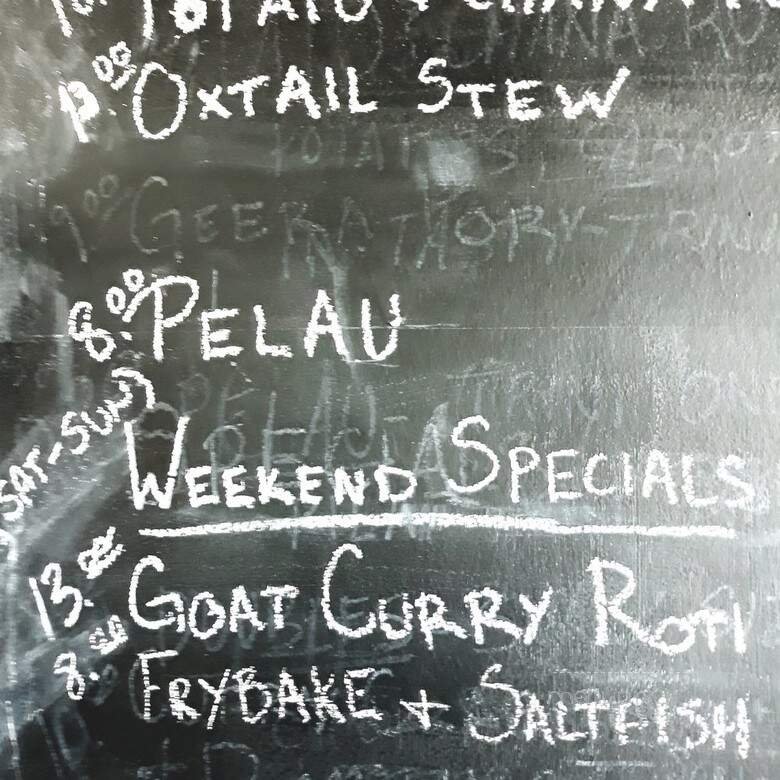 POTATO + CHANNA
13.00 OXTAIL STEW
9.00 GEERA PORK
8.00 PELAU
(SAT-SUN)
WEEKEND SPECIALS
13.00 GOAT CURRY ROTI
8.00 FRYBAKE + SALTFISH